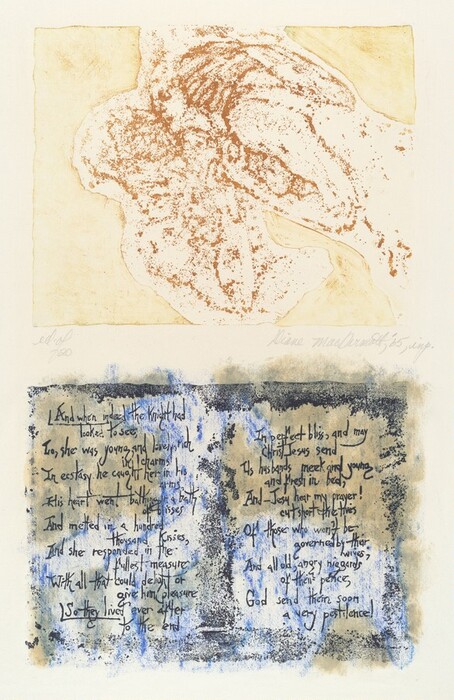 ed. of
Diane MacDermott, '25, imp.
And when indeed the Knight had
looked to see,
Lo, she was young, and lovely, rich
in charms!
In ecstasy he caught her in his
arms
His heart went bathing in a bath
of blisses
And melted in a hundred
thousand kisses,
And she responded in the
fullest measure
With all that could delight or
give him pleasure
So they lived ever after
to the end
In perfect bliss; and may
Christ Jesus send
Us husbands meek and young
and fresh in bed,
And - Jesu hear my prayer!
cut short the lives
Of those who won't be
governed by their
wives;
And all old, angry niggards
of their pence,
God send them soon
a very pestilence!